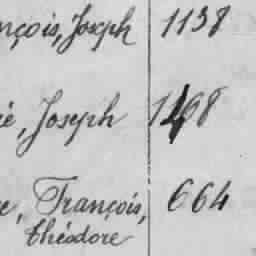 nçois, Joseph 1138
é, Joseph 1468
e, François, 664
Théodore